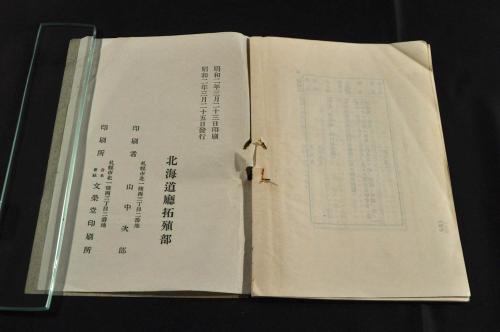 昭和二年三月二十三日印刷
昭和二年三月二十五日發行
北海道廳拓殖部
札幌市北一條西三丁目二番地
印刷者 山中次郎
札幌市北一條西三丁目二番地
印刷所 合名會社 文榮堂印刷所